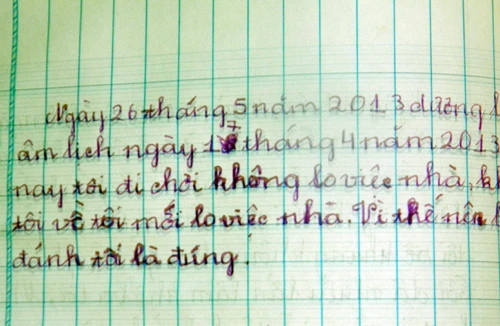 Ngày 26 tháng 5 năm 2013 dương
âm lịch ngày 17 tháng 4 năm 2013
nay tôi đi chơi không lo việc nhà,
tôi về tôi mới lo việc nhà. Vì thế nên
đánh tôi là đúng.